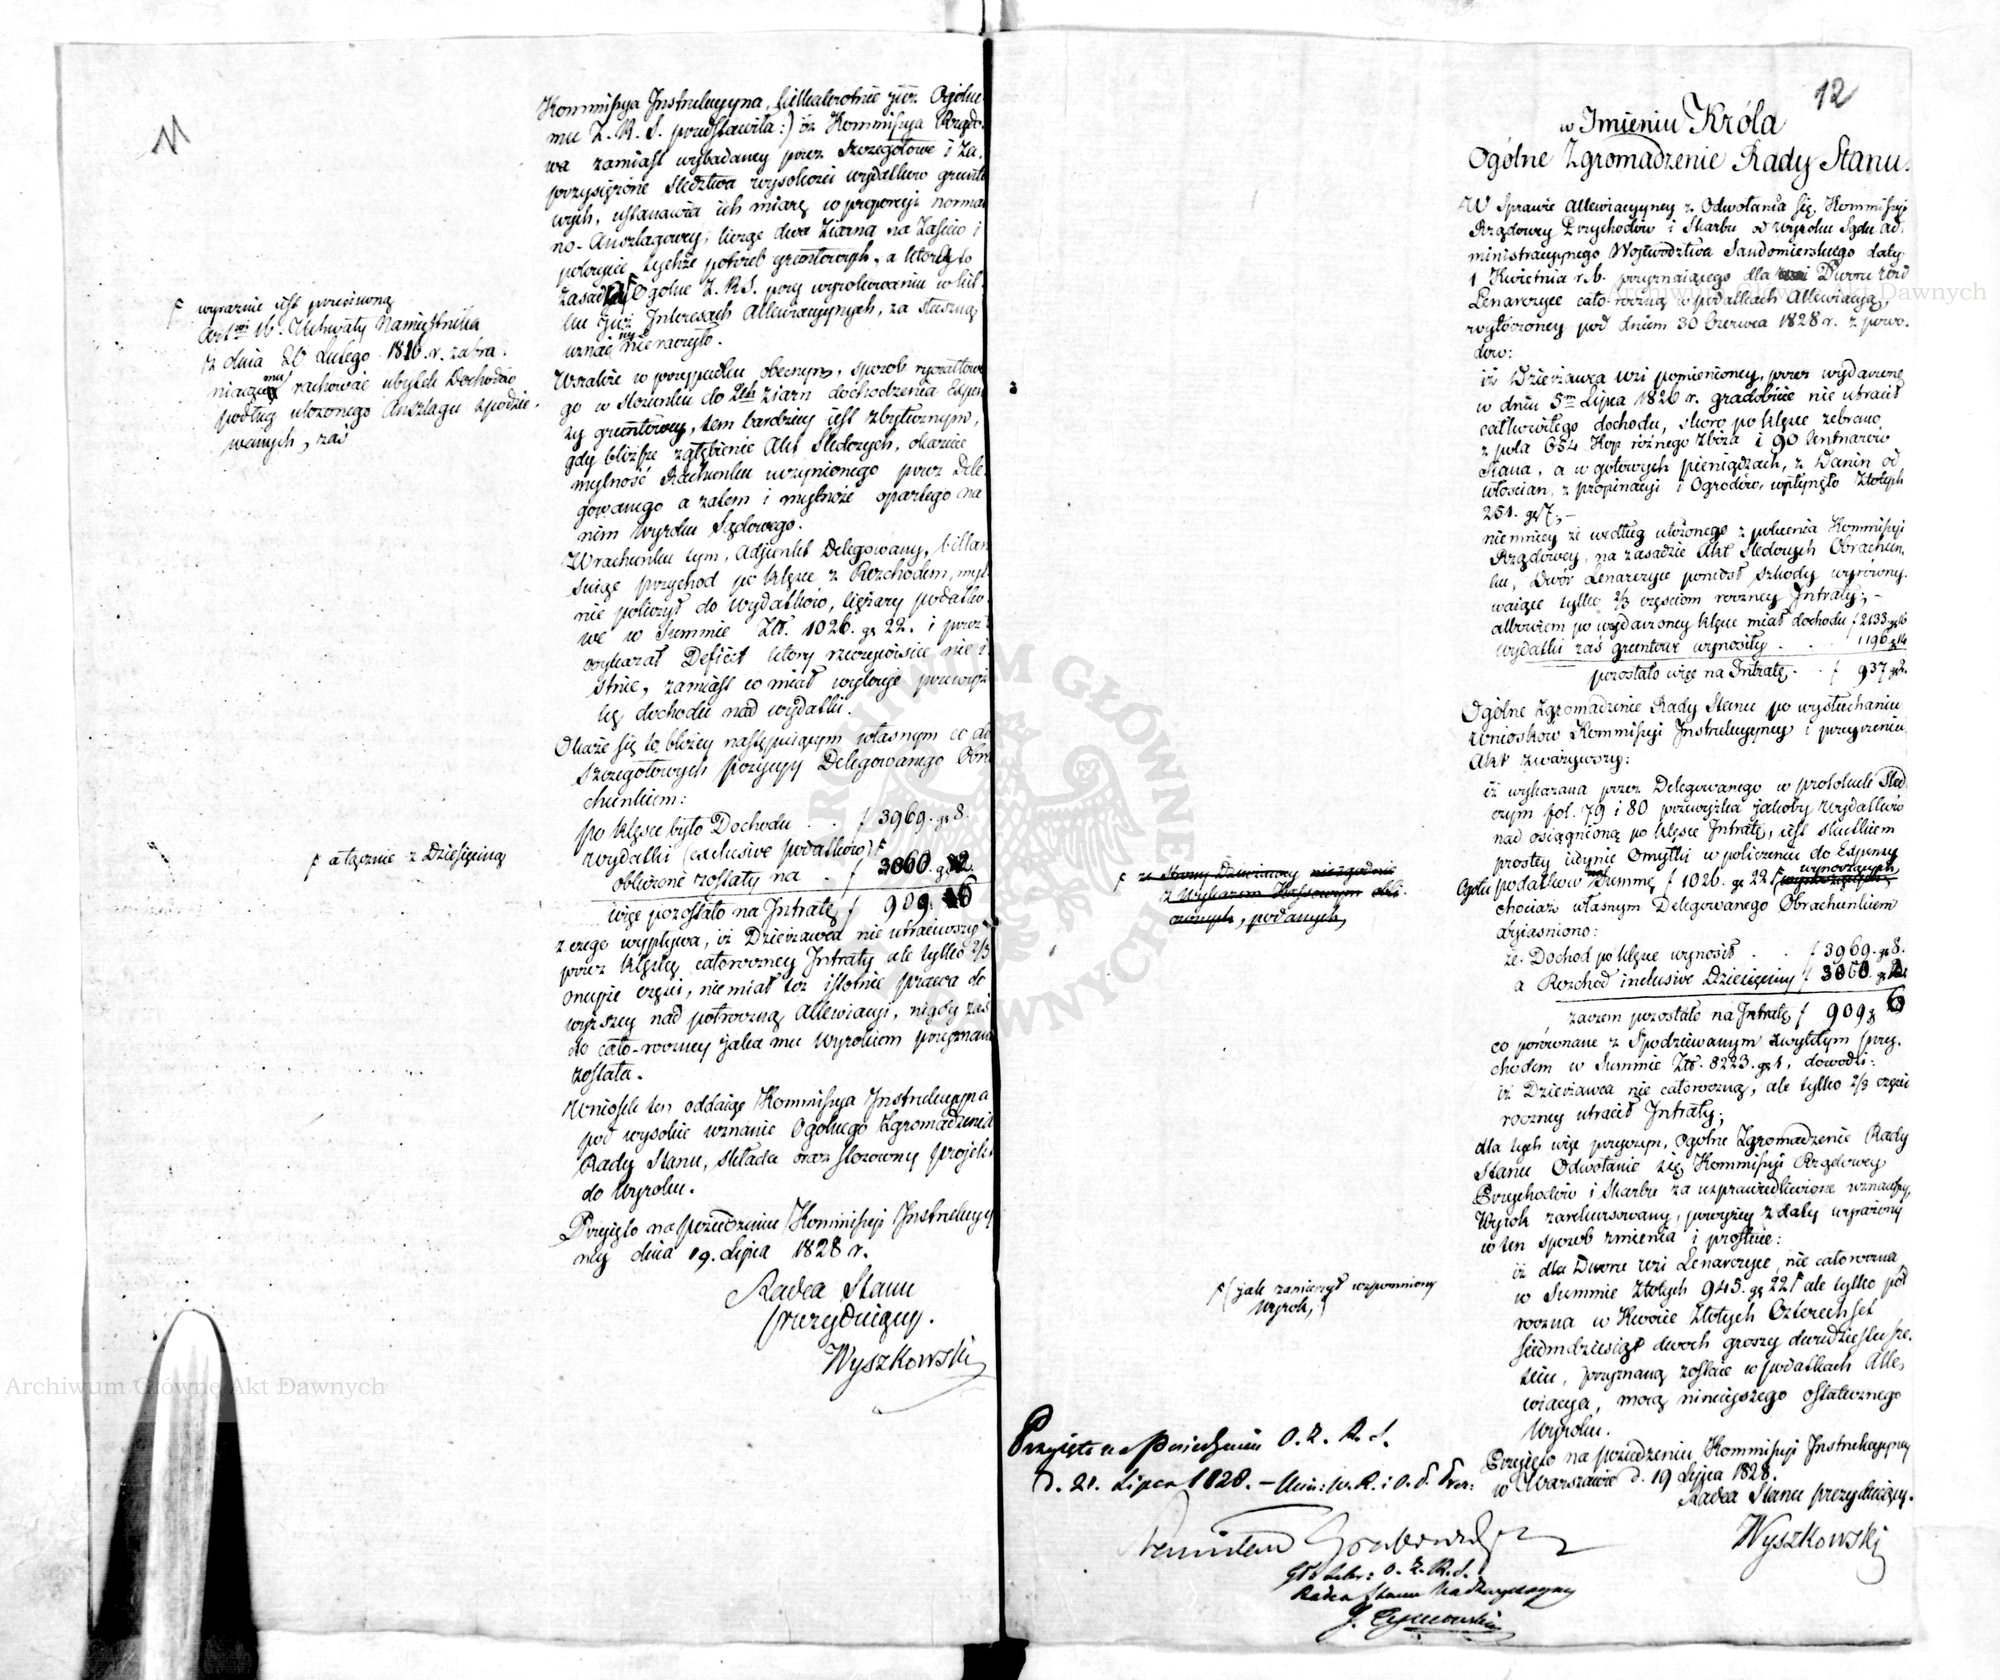 11
Kommissya Instrukcyjna, kilkakrotnie już Ogólne-
mu Z. R. S. przedstawiła:) że Kommissya Rządo-
wa zamiast wybadaney przez szczegółowe i za-
przysiężone śledztwa wysokości wydatków grunto-
wych, ustanawia ich miarę w proporcyi norma
no-Anszlagowey, licząc dwa ziarna na zasiew i
potrzeb gruntowych, a którey to
zasady Ogólne Z. R. S. przy wyrokowaniu w kil-
ku już Interesach Allewiacyjnych, za słuszną
uznać nie raczyło.
F wyraźnie jest przeciwną
Art. 16. Uchwały Namiestnika
z dnia 20 Lutego 1816 r. zabra-
niającej rachować ubytek Dochodów
podług ułożonego Anszlagu spodzie-
wanych, zaś
Wszakże w przypadku obecnym, sposób ryczałtowe-
go w stosunku do 2ch ziarn dochodzenia Expen-
sy gruntowey, tem bardziey jest zbytecznym,
gdy bliższe zgłębienie Akt śledczych, okazuje
mylność Rachunku uczynionego przez Dele-
gowanego a zatem i mylność opartego na
nim Wyroku Sądowego.
W rachunku tym, Adjunkt Delegowany,
przychod po klęsce z Rozchodem, myl-
nie policzył do wydatków, ciężary podatko-
we w Summie Złł. 1026. gr 22. i przez
wykazał Deficit który rzeczywiście nie i-
stnie, zamiast co miał wykazać przewyż-
kę dochodu nad wydatki.
Okaże się to bliżey następującym własnym co do
szczegółowych pozycyy Delegowanego Obra-
chunkiem:
po klęsce było Dochodu . . f 3969. gr 8.
wydatki (exclusive podatków) F
obliczone zostały na . f 3060. gr 2
F a łącznie z Dziesięciną
więc pozostało na Intratę f 909. 6
z czego wypływa, iż Dzierżawca nie utraciwszy
przez klęskę całoroczney Intraty ale tylko 2/3
części, nie miał też istotnie prawa do
wyższey nad półroczną Allewiacyi, nigdy zaś
do cało-roczney jaka mu Wyrokiem przyznana
została.
Wniosek ten oddając Kommissya Instrukcyjna
pod wysokie uznanie Ogólnego Zgromadzenia
Rady Stanu, składa oraz stosowny projekt
do Wyroku.
Przyjęto na posiedzeniu Kommissyi Instrukcyy-
ney dnia 19. Lipca 1828 r.
Radca Stanu
prezydujący.
Wyszkowski
12
w Imieniu Króla
Ogólne Zgromadzenie Rady Stanu.
W Sprawie Allewiacyyney z Odwołania się, Kommissyi
Rządowey Przychodów i Skarbu od Wyroku Sądu Ad-
ministracyjnego Województwa Sandomierskiego daty
1 Kwietnia r. b. przyznaiącego dla Dworu wsi
Lenarczyce cało-roczną w podatkach Allewiacyą,
wytoczoney pod dniem 30 Czerwca 1828 r. z powo-
dow:
iż Dzierżawca wsi pomienioney, przez wydarzone
w dniu 5m Lipca 1826 r. gradobicie nie utracił
całkowitego dochodu, skoro po klęsce zebrano
z pola 654 Kop różnego zboża i 90 Centnarów
Siana, a w gotowych pieniądzach, z Danin od
włościan, z propinacyi i Ogrodów, wpłynęło Złotych
251. gr 7; —
niemniey że według ułożonego z polecenia Kommissyi
Rządowey, na zasadzie Akt śledczych Obrachun-
ku, Dwór Lenarczyce poniósł szkody wyrówny-
waiące tylko 2/3 częściom roczney Intraty; —
albowiem po wydarzoney klęsce miał dochodu f 2133 gr 16
wydatki zaś gruntowe wynosiły . . . 1196 gr 14
pozostało więc na Intratę . . f 937 gr 2.
Ogólne Zgromadzenie Rady Stanu po wysłuchaniu
wniosków Kommissyi Instrukcyyney i przeyrzeniu
Akt zważywszy:
iż wykazana przez Delegowanego w protokule śled-
czym fol. 79 i 80 przewyżka jakoby wydatków
nad osiągnioną po klęsce Intratę, jest skutkiem
prostey jedynie Omyłki w policzeniu do Expensy
Ogółu podatków na Summę f 1026. gr 22 F wynoszących
F ze strony Dzierżawcy niezgodnie
z Wykazem Kassowym obli-
czonych, podanych,
chociaż własnym Delegowanego Obrachunkiem
wyjaśniono:
że Dochod po klęsce wynosił . . f 3969. gr 8.
a Rozchod inclusive Dziesięciny f 3060. gr 2
zaczem pozostało na Intratę f 909 gr 6
co porównane z Spodziewanym zwykłym przy-
chodem w Summie Złł. 8223. gr 1, dowodzi:
iż Dzierżawca nie całoroczną, ale tylko 2/3 części
roczney utracił Intraty;
dla tych więc przyczyn, Ogólne Zgromadzenie Rady
Stanu Odwołanie się Kommissyi Rządowey
Przychodów i Skarbu za usprawiedliwione uznawszy,
Wyrok zarekursowany, powyżey z daty wyrażony
w ten sposób zmienia i prostuie:
iż dla Dworu wsi Lenarczyce, nie całoroczna,
w Summie Złotych 945. gr 22 F ale tylko pół
roczna w Kwocie Złotych Czterechset
siedmdziesiąt dwóch groszy dwadzieścia sze-
ściu, przyznaną zostaie w podatkach Alle-
wiacya, mocą ninieyszego ostatecznego
Wyroku.
F (jak zamierzył wspomniony
Wyrok,)
Przyjęto na posiedzeniu Kommissyi Instrukcyyney
w Warszawie d. 19 Lipca 1828.
Radca Stanu prezydujący.
Wyszkowski
Przyjęto na Posiedzeniu O. Z. R. S.
d. 21. Lipca 1828. — Min: W. R. i O. P. Prez:
Stanisław Grabowski
Radca Stanu Nadzwyczayny
Archiwum Główne Akt Dawnych
Archiwum Główne Akt Dawnych
ARCHIWUM GŁÓWNE AKT DAWNYCH